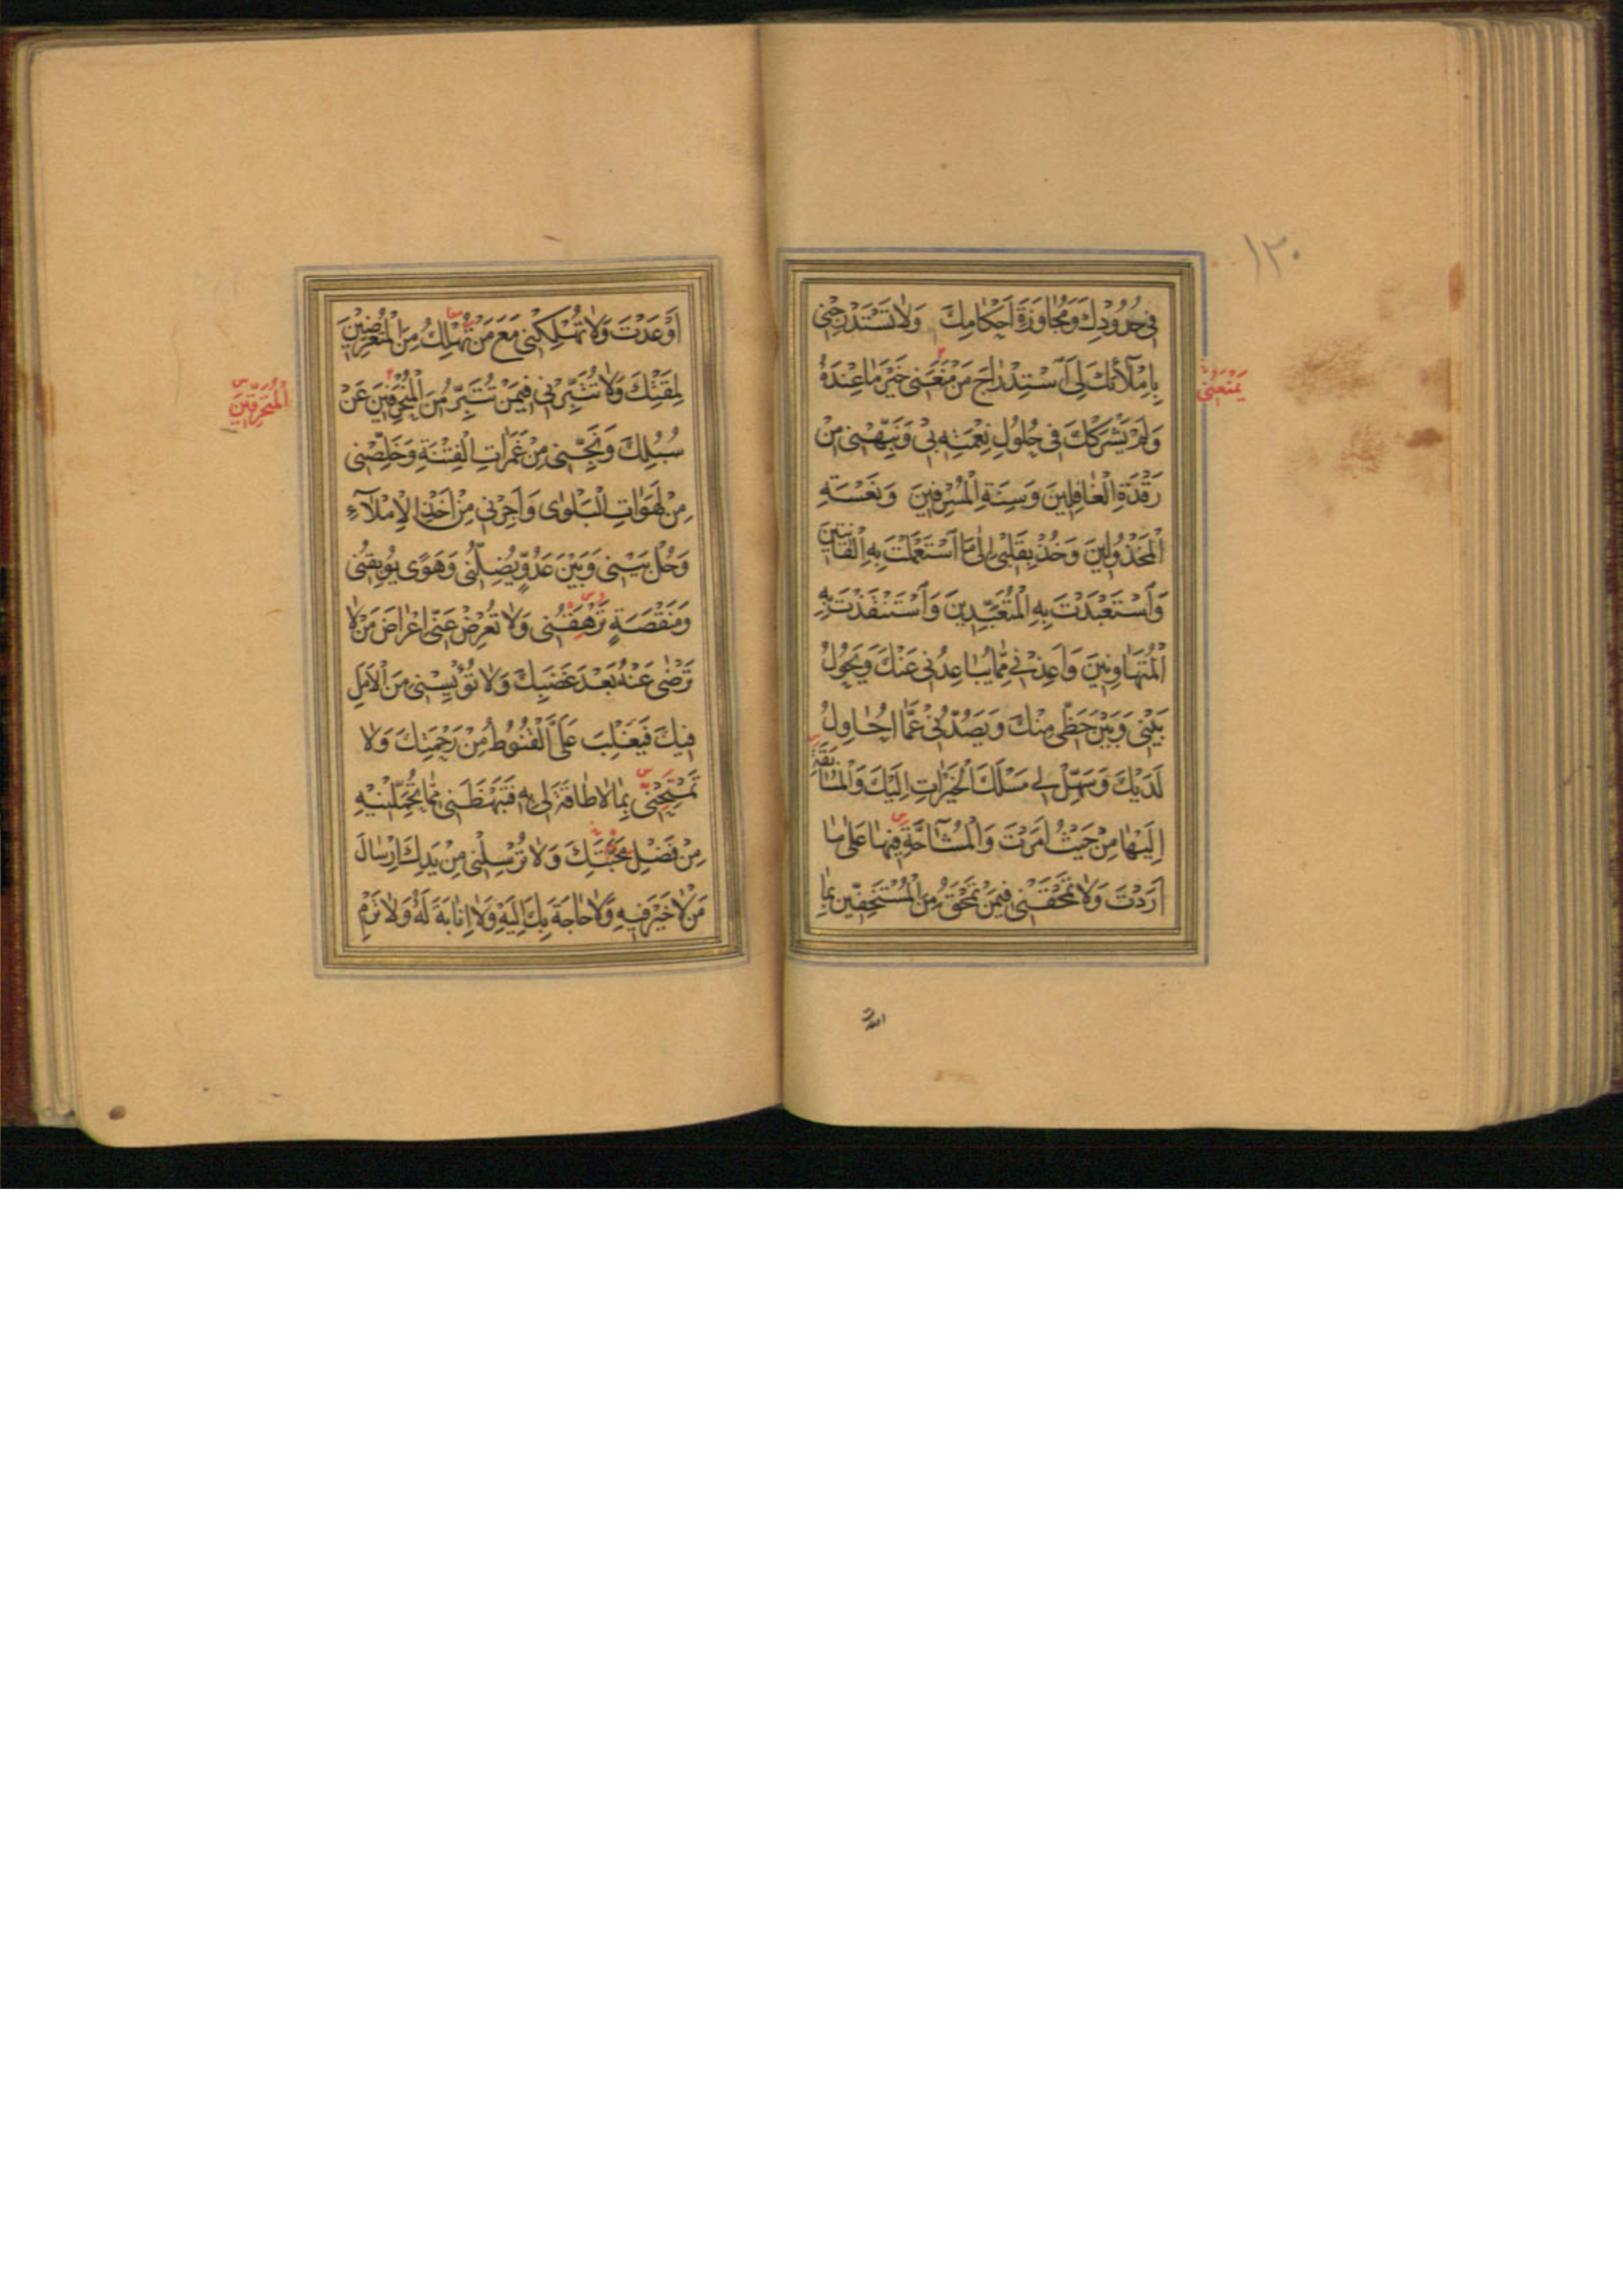 ١٢٠
فِى حُدُودِكَ وَمُجَاوَزَةَ اَحْكَامِكَ وَلَا تَسْتَدْرِجْنِى
بِاِمْلَآئِكَ لِى اَسْتِدْرَاجَ مَنْ مَنَعَنِى خَيْرَ مَا عِنْدَهُ
يَمْنَعُنِى
وَلَمْ يَشْرَكْكَ فِى حُلُولِ نِعْمَتِهِ بِى وَنَبِّهْنِى مِنْ
رَقْدَةِ الْغَافِلِينَ وَسِنَةِ الْمُسْرِفِينَ وَنَعْسَةِ
الْمَخْذُولِينَ وَخُذْ بِقَلْبِى اِلٰى مَا اَسْتَعْمَلْتَ بِهِ الْقَانِتِينَ
وَاَسْتَعْبَدْتَ بِهِ الْمُتَعَبِّدِينَ وَاَسْتَنْقَذْتَ بِهِ
الْمُتَهَاوِنِينَ وَاَعِذْنِى مِمَّا يُبَاعِدُنِى عَنْكَ وَيَحُولُ
بَيْنِى وَبَيْنَ حَظِّى مِنْكَ وَيَصُدُّنِى عَمَّا اُحَاوِلُ
لَدَيْكَ وَسَهِّلْ لِى مَسْلَكَ الْخَيْرَاتِ اِلَيْكَ وَالْمُسَابَقَةَ
اِلَيْهَا مِنْ حَيْثُ اَمَرْتَ وَالْمُشَآحَّةَ فِيهَا عَلٰى مَا
اَرَدْتَ وَلَا تَمْحَقْنِى فِيمَنْ تَمْحَقُ مِنَ الْمُسْتَخِفِّينَ بِمَا
اَوْعَدْتَ وَلَا تُهْلِكْنِى مَعَ مَنْ تُهْلِكُ مِنَ الْمُتَعَرِّضِينَ
لِمَقْتِكَ وَلَا تُتَبِّرْنِى فِيمَنْ تُتَبِّرُ مِنَ الْمُنْحَرِفِينَ عَنْ
سُبُلِكَ وَنَجِّنِى مِنْ غَمَرَاتِ الْفِتْنَةِ وَخَلِّصْنِى
مِنْ لَهَوَاتِ الْبَلْوٰى وَاَجِرْنِى مِنْ اَخْذِ الْاِمْلَآءِ
وَحُلْ بَيْنِى وَبَيْنَ عَدُوٍّ يُضِلُّنِى وَهَوًى يُوبِقُنِى
وَمَنْقَصَةٍ تَرْهَقُنِى وَلَا تُعْرِضْ عَنِّى اِعْرَاضَ مَنْ لَا
تَرْضٰى عَنْهُ بَعْدَ غَضَبِكَ وَلَا تُؤْيِسْنِى مِنَ الْاَمَلِ
فِيكَ فَيَغْلِبَ عَلَىَّ الْقُنُوطُ مِنْ رَحْمَتِكَ وَلَا
تَمْتَحِنِّى بِمَا لَا طَاقَةَ لِى بِهِ فَتَبْهَظَنِى مِمَّا تُحَمِّلُنِيهِ
مِنْ فَضْلِ مَحَبَّتِكَ وَلَا تُرْسِلْنِى مِنْ يَدِكَ اِرْسَالَ
مَنْ لَا خَيْرَ فِيهِ وَلَا حَاجَةَ بِكَ اِلَيْهِ وَلَا اِنَابَةَ لَهُ وَلَا تَرْمِ